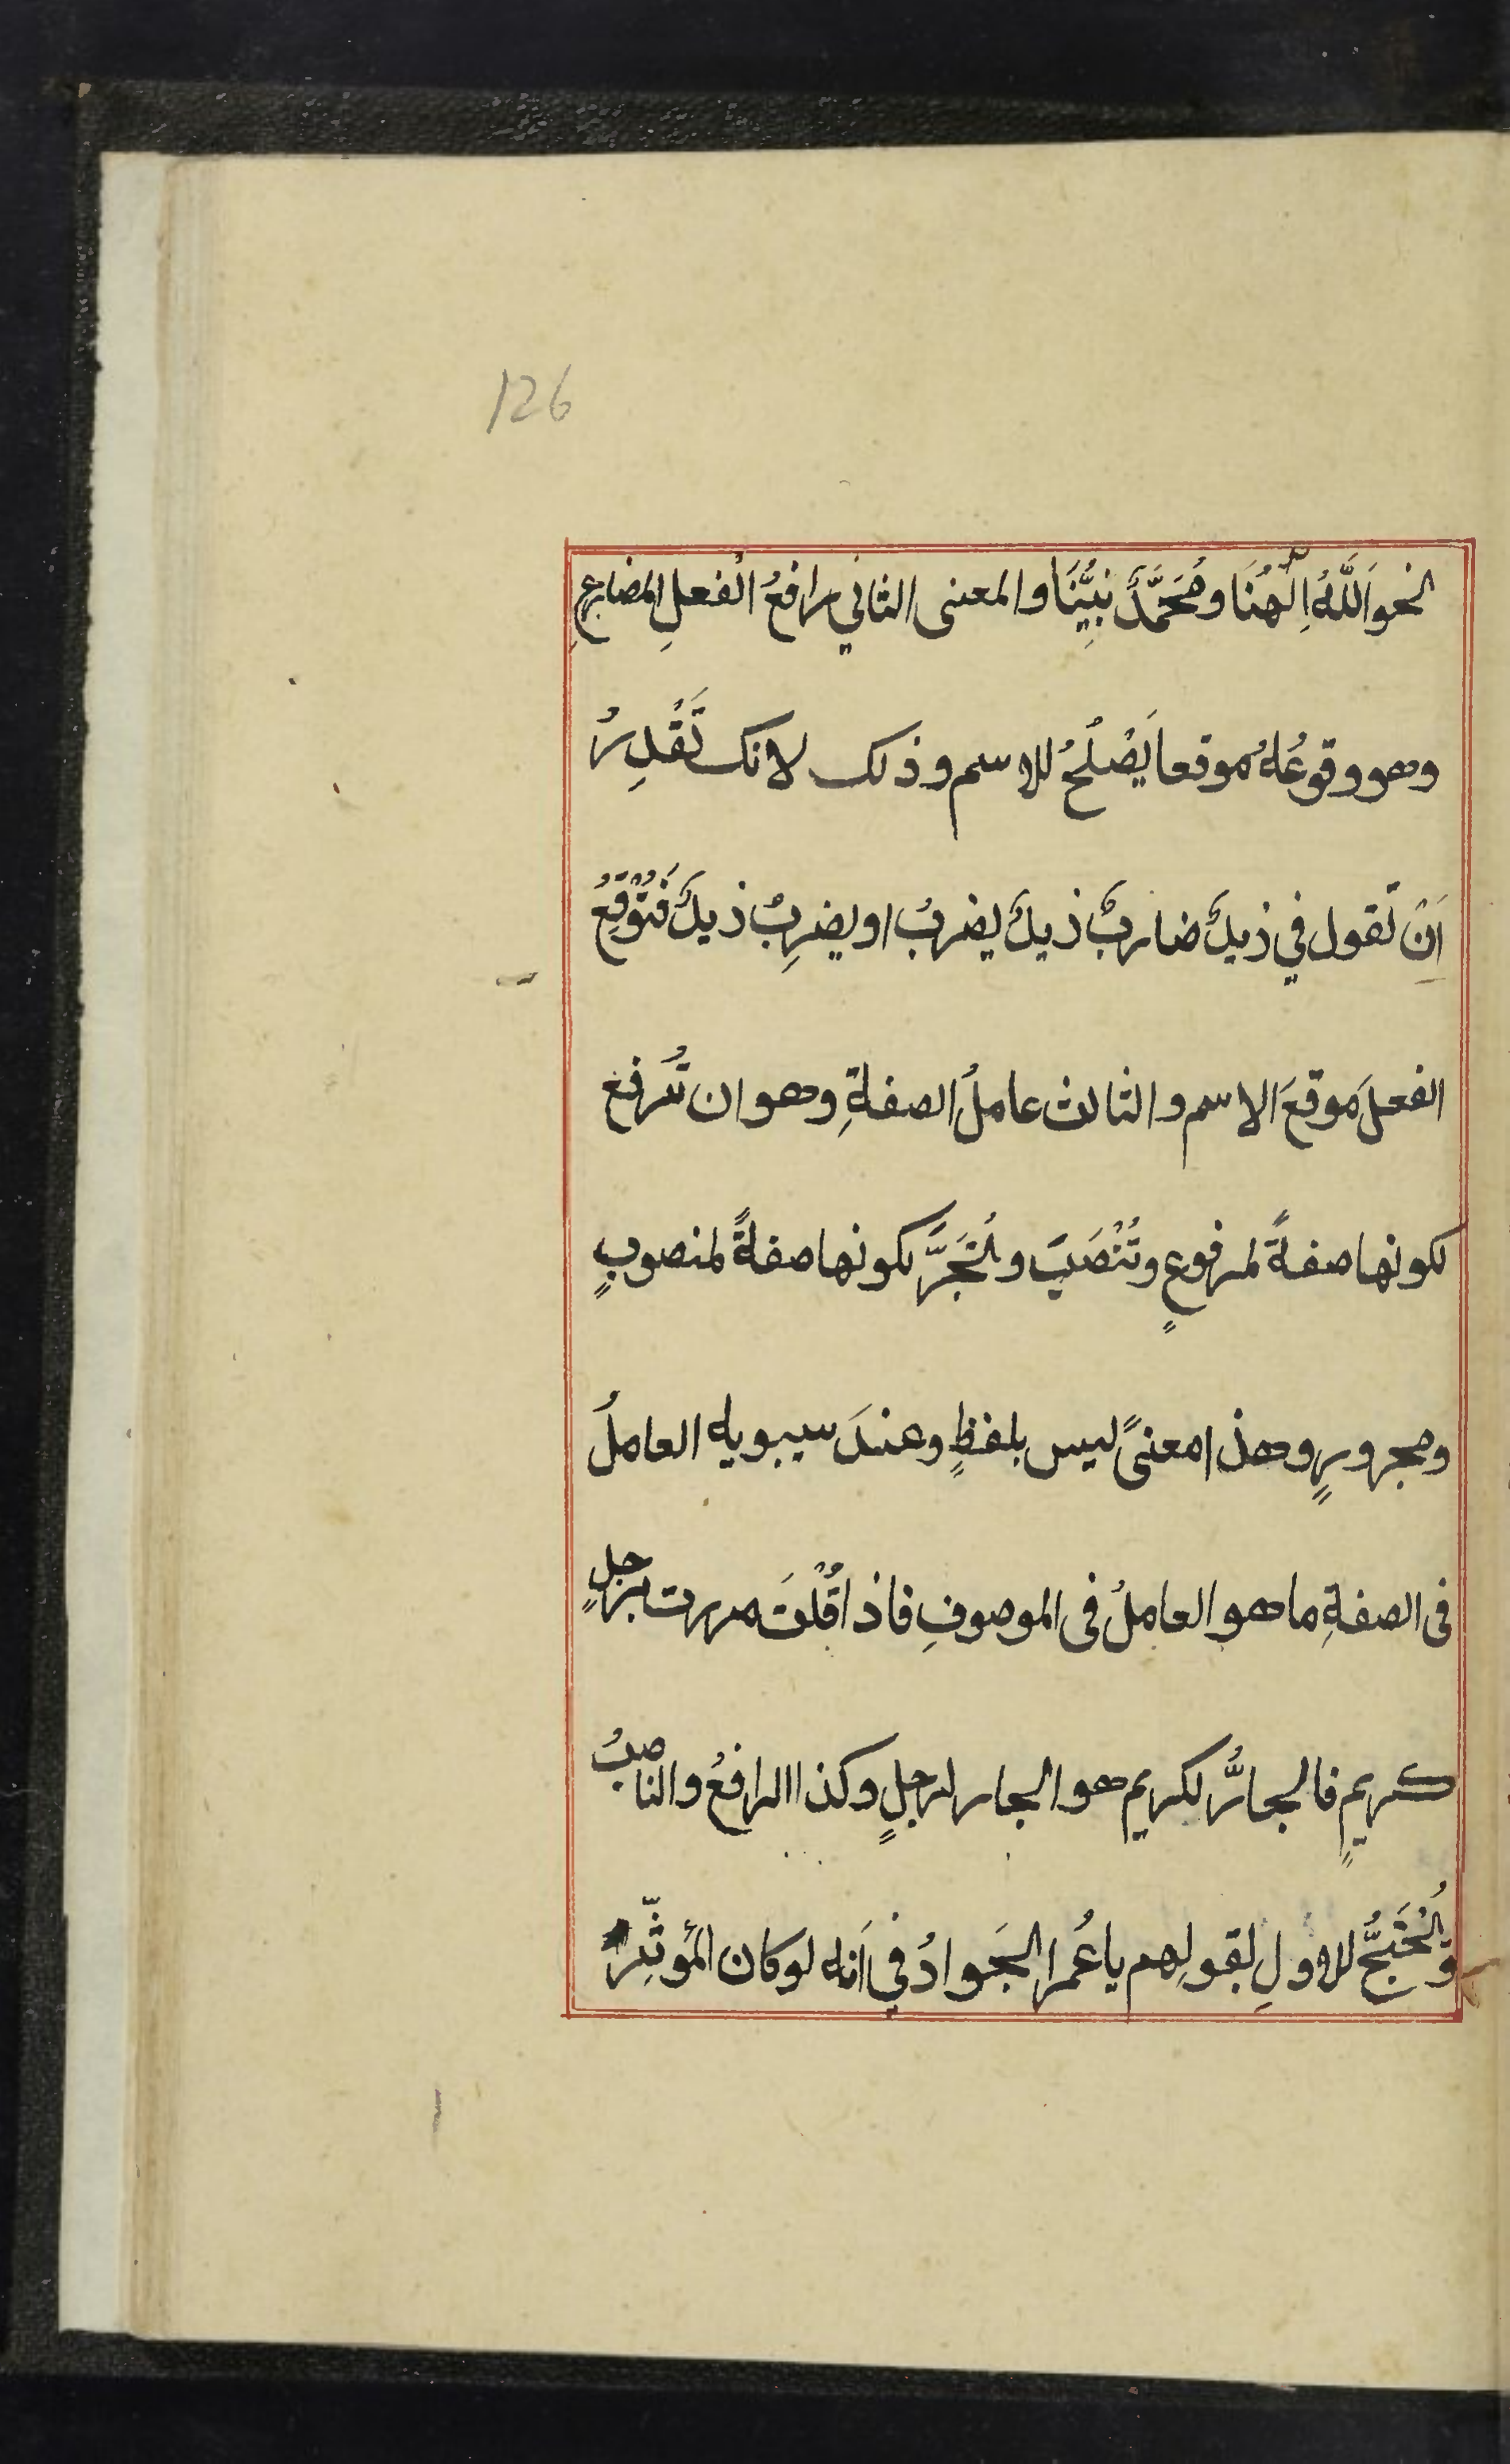 126
نحو اَللّٰهُ اِلٰهُنَا ومُحَمَّدٌ نبِيُّنَا والمعنى الثاني رافعُ الفعلِ المضارعِ
وهو وقوعُهُ موقعا يَصْلُحُ للاسم وذلك لانك تَقْدِرُ
اَنْ تقول في زيدٌ ضاربٌ زيدٌ يضربُ او يضرِبُ زيدٌ فَتُوْقِعُ
الفعلَ مَوقعَ الاسم والثالث عاملُ الصفةِ وهو ان تُرفع
لكونها صفةً لمرفوعٍ وتُنْصَبَ وتُجَرَّ لكونها صفةً لمنصوبٍ
ومجرورٍ وهذا معنىً ليس بلفظٍ وعندَ سيبويه العاملُ
فى الصفةِ ما هو العاملُ فى الموصوفِ فاذا قُلْتَ مررت برجلٍ
كريمٍ فالجارُّ لكريم هو الجار لرجلٍ وكذا الرافعُ والناصبُ
ويُحْتَجُّ للاولِ بقولِهم يا عُمرُ الجَوادُ في اَنه لو كان المُوثِّر